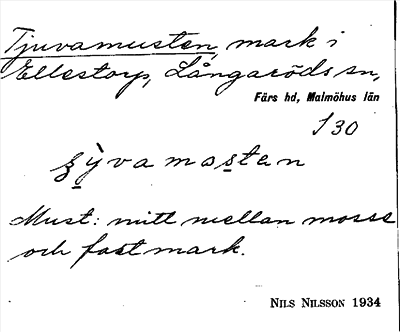 Tjuvamusten, mark i
Ellestorp, Långaröds sn,
Färs hd, Malmöhus län
S30
ȿỳvamosten
Must: mitt mellan mosse
och fast mark.
NILS NILSSON 1934